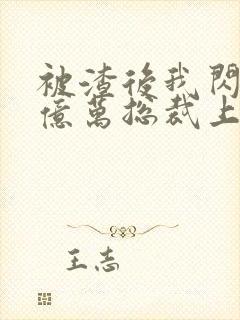 被渣後我閃
億萬總裁上
王志